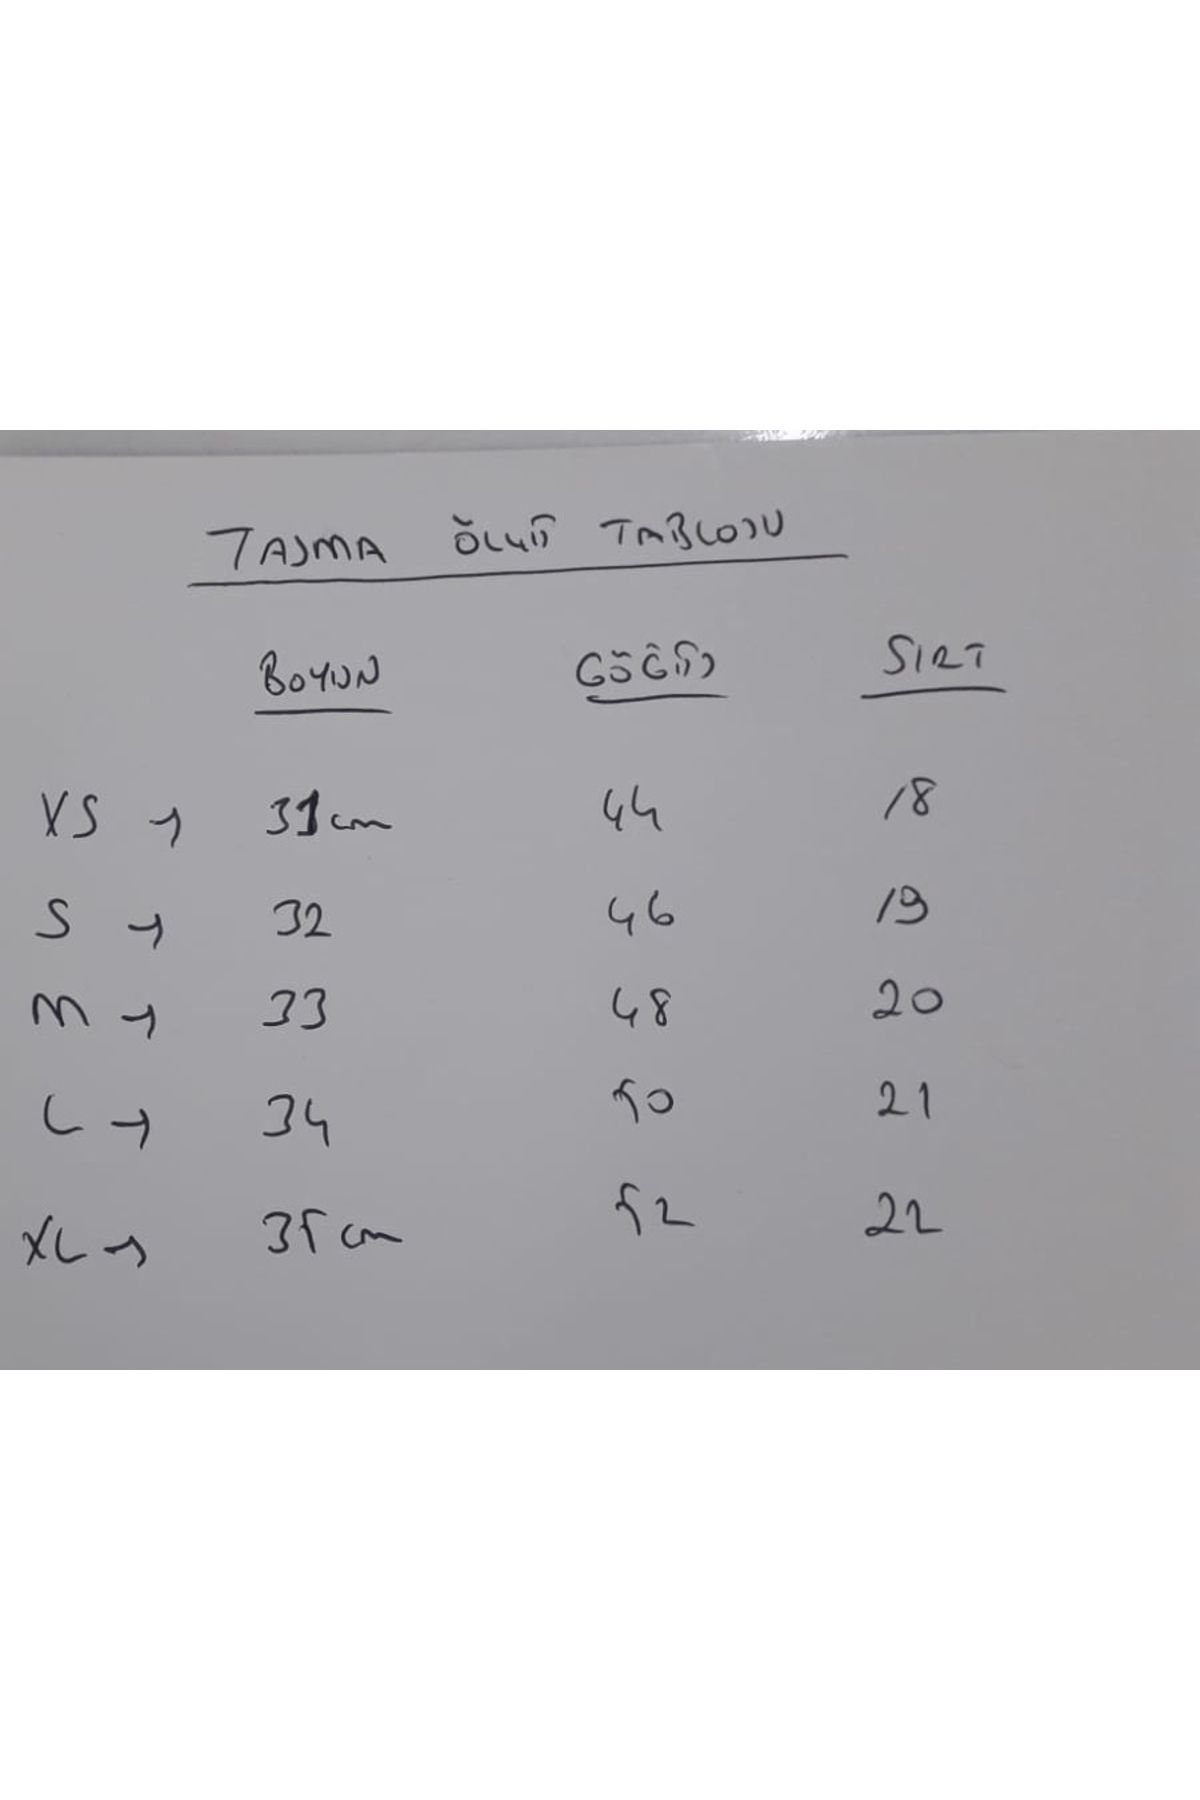 TASMA ÖLÇÜ TABLOSU
BOYUN GÖĞÜS SIRT
XS → 31cm 44 18
S → 32 46 19
M → 33 48 20
L → 34 50 21
XL → 35 cm 52 22